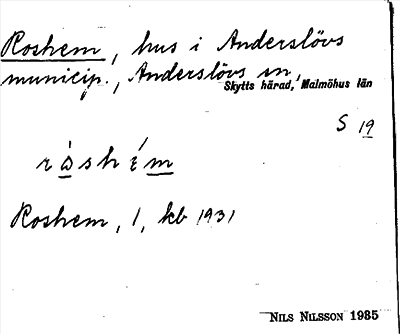 Roshem, hus i Anderslövs
municip., Anderslövs sn,
Skytts härad, Malmöhus län
S 19
Roshem, 1, kb 1931
NILS NILSSON 1935